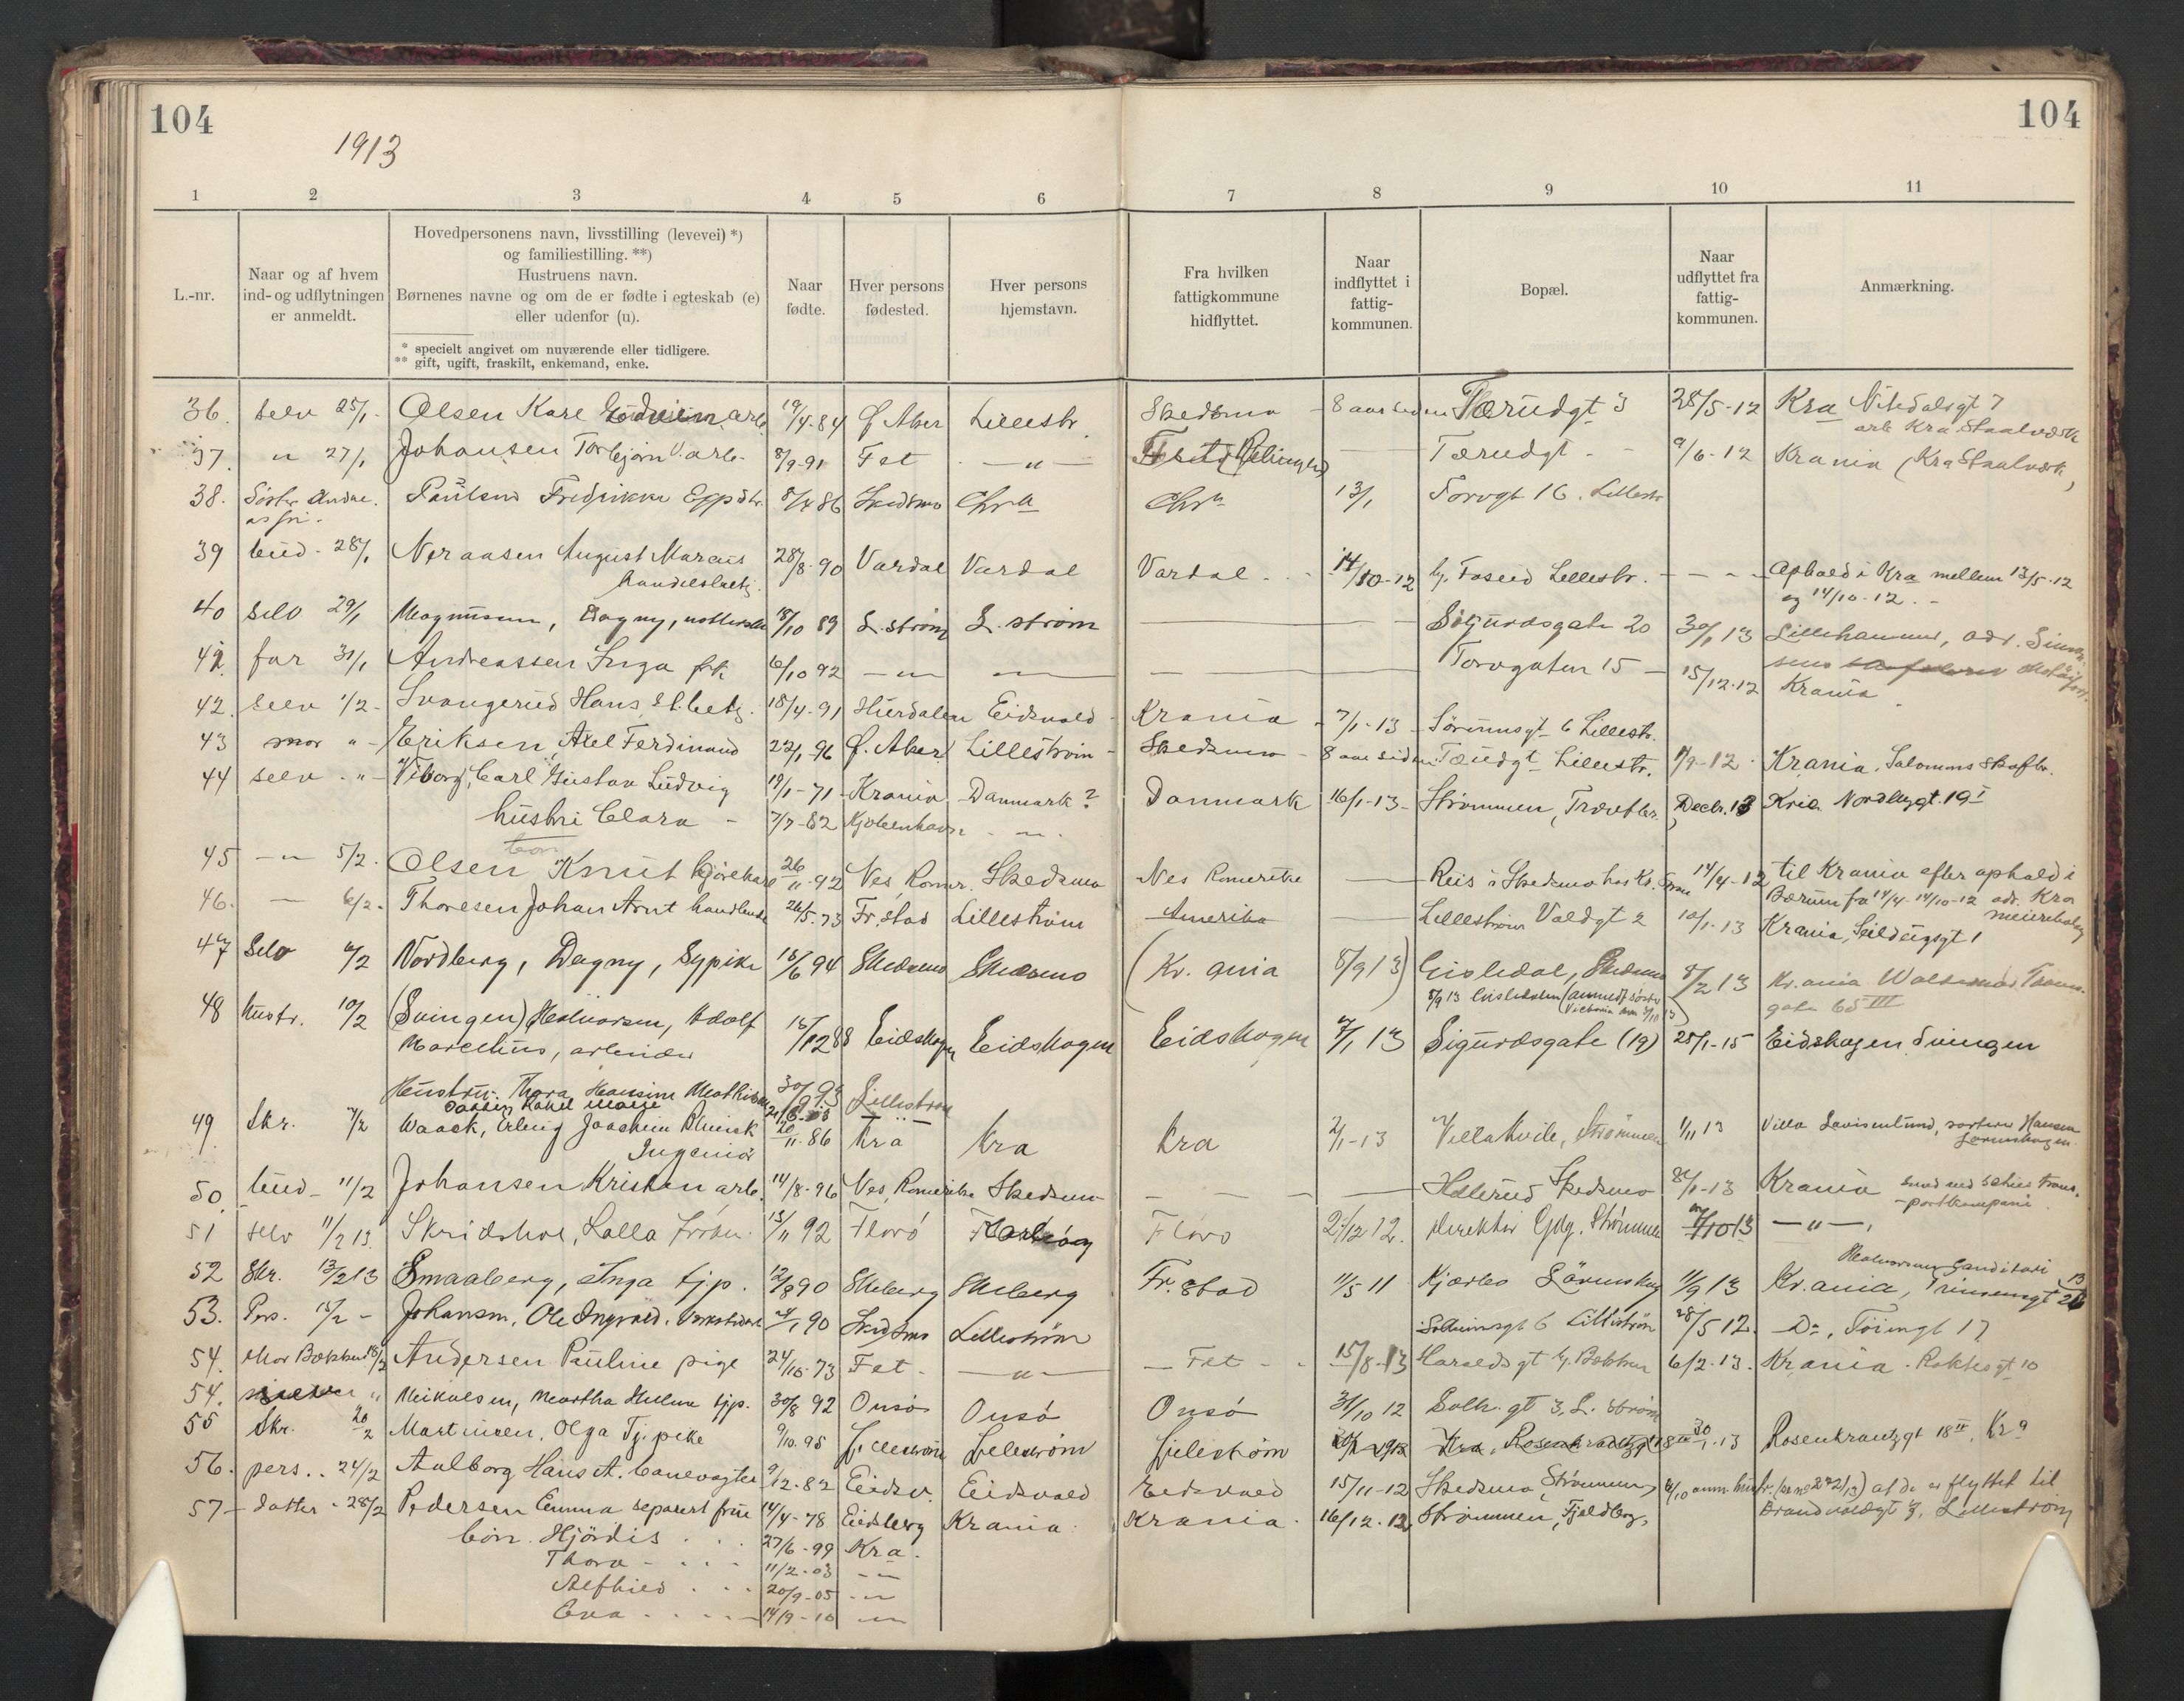 104
104
1913
1 2 3 4 5 6 7 8 9 10 11
L.-nr.
Naar og af hvem
ind- og udflytningen
er anmeldt.
Hovedpersonens navn, livsstilling (levevei) *)
og familiestilling. **)
Hustruens navn.
Børnenes navne og om de er fødte i egteskab (e)
eller udenfor (u).
* specielt angivet om nuværende eller tidligere.
** gift, ugift, fraskilt, enkemand, enke.
Naar
fødte.
Hver persons
fødested.
Hver persons
hjemstavn.
Fra hvilken
fattigkommune
hidflyttet.
Naar
indflyttet i
fattig-
kommunen.
Bopæl.
Naar
udflyttet fra
fattig-
kommunen.
Anmærkning.
36. selv 25/1 - Olsen Karl Edvin arb. 19/4-84 Ø. Aker Lillestr. Skedsmo - 8 aar siden Tærudgt 3 28/5-12 Kra Nitedalsgt 7
arb Kra Staalværk
37. " 27/1 Johansen Torbjørn V. arb. 8/9-91 Fet - " - (Rælingen) Tærudgt - - 9/6-12 Krania (Kra Staalværk)
38. Søster Paulsen Fredrikke 8/4 86 Skedsmo Chra Chra 13/1 Torvgt 16. Lillestr
39 bud - 28/1 Neraasen August Marcus 28/8-90 Vardal Vardal Vardal - - 14/10-12 Lillestr. - - - Ophold i Kra mellem 13/5-12
og 14/10-12. -
40 selv 29/1 Magnussen, Dagny, 18/10 89 L. strøm L. strøm Sigurdsgate 20 30/1 13 Lillehammer, adr.
41. far 31/1 Andreassen Inga frk 6/10 92 - " - Torvgaten 15 - 15/12-12 Krania
42. selv 1/2 - Svangerud Hans 18/4-91 Hurdalen Eidsvold - Krania - 7/1-13 - Sørumsgt 6 Lillestr.
43 mor " - Eriksen Axel Ferdinand 22/1-96 Ø. Aker Lillestrøm - Skedsmo - 8 aar siden Tærudgt Lillestr. 1/9-12 - Krania, Salomons Skofbr.
44 selv - " - Viborg, Carl Gustav Ludvig 19/1-71 - Krania - Danmark? Danmark 16/1-13 - Strømmen, Decbr. 13 Kria Nordbygt. 19 I
hustri Clara - 7/7-82 Kjøbenhavn - " -
45 - " - 5/2. Olsen Knut kjørekar 26/11-92 Ves Romr. Skedsmo Nes Romerike Reis i Skedsmo hos Kr. 14/4-12 til Krania efter ophold i
Bærum fra 14/4-14/10-12 adr. Kra
meieribolag
46. - 6/2 - Thoresen Johan Arnt handlende 26/5-73 Fr.stad Lillestrøm Amerika Lillestrøm Voldgt 2 10/1-13 Krania, Seildugsgt 1
47 Selv 6/2 Nordberg, Dagny, Sypike 18/6 94 Skedsmo Skedsmo (Kr. ania 8/9 13) Gisledal, Skedsmo 8/2 13 Kr.ania Waldemar Thranes
gate 65 III
48 Hustr. 10/2 (Svingen) Halvorsen, Adolf
Marcelius, arbeider 18/12 88 Eidskogen Eidskogen Eidskogen 7/1 13 Sigurdsgate (19) 25/1-15 Eidskogen Svingen
Hustru: Thora Hansine Mathisen 30/9 93 Lillestrøm
Datter Rakel Marie
49. Skr. 7/2 Waack, Erling Joachim 20/11-86 Kra Kra Kra 2/1-13 Villa Hvile, Strømmen 1/11 13 Villa Lovisenlund, Hansen
Ingeniør
50. bud - 11/2 Johansen Kristian arb. 14/8-96 Nes, Romerike Skedsmo Hellerud Skedsmo 1-13 Krania trans-
-portkompani
51 selv 11/2 13. Skridshol, Lalla 15/11 92 Florö Florö 27/12 12. direktør Strømmen 10 13 - " -
52 Skr. 13/2 13 Smaaberg, Inga tjp. 12/8 90 Skiberg Skiberg Fr. stad 11/5 11 Kjærbo Lörenskog 11/9 13 Kr.ania,
53. Pers. 15/2 - Johansen, Ole Ingvald. 90 Skedsmo Lillestrøm Solheimsgt 6 Lillestrøm 28/5 12. Do, Töiengt 17
54. Mor Andersen Pauline pige 24/10-73 Fet - - " - - Fet - - 15/8-13 Haraldsgt 6/2-13. Krania. gt 10
54. " Mikalsen, Martha Helene tjp. 30/8 92 Onsö Onsö Onsö 31/10 12 Solh. gt 3, L. strøm
55 Skr. 20/2 Martinsen, Olga Tj. pike 9/10-95 Lillestrøm Lillestrøm Lillestrøm Kra, Rosenkrantzgt 18 III 30/1-13 Rosenkrantzgt 18 III, Kra
56. pers. . 24/2 Aulborg Hans A. banevogter 9/12-82 Eidsv. Eidsvold Eidsvold 15/11-12 Skedsmo (Strømmen) at de er flyttet til
Brandvoldgt 3, Lillestrøm
57 - datter - 28/2 Pedersen Emma separert frue 14/4-78 Eidsberg Krania - Krania - 16/12-12 Strømmen, Fjeldberg,
börn. Hjördis . . . 27/6-99 Kra.
Thora - . . . 11/2-03 - " -
Alfhild . . . 20/9-05 - " -
Eva . . . . - 14/9-10 - " -